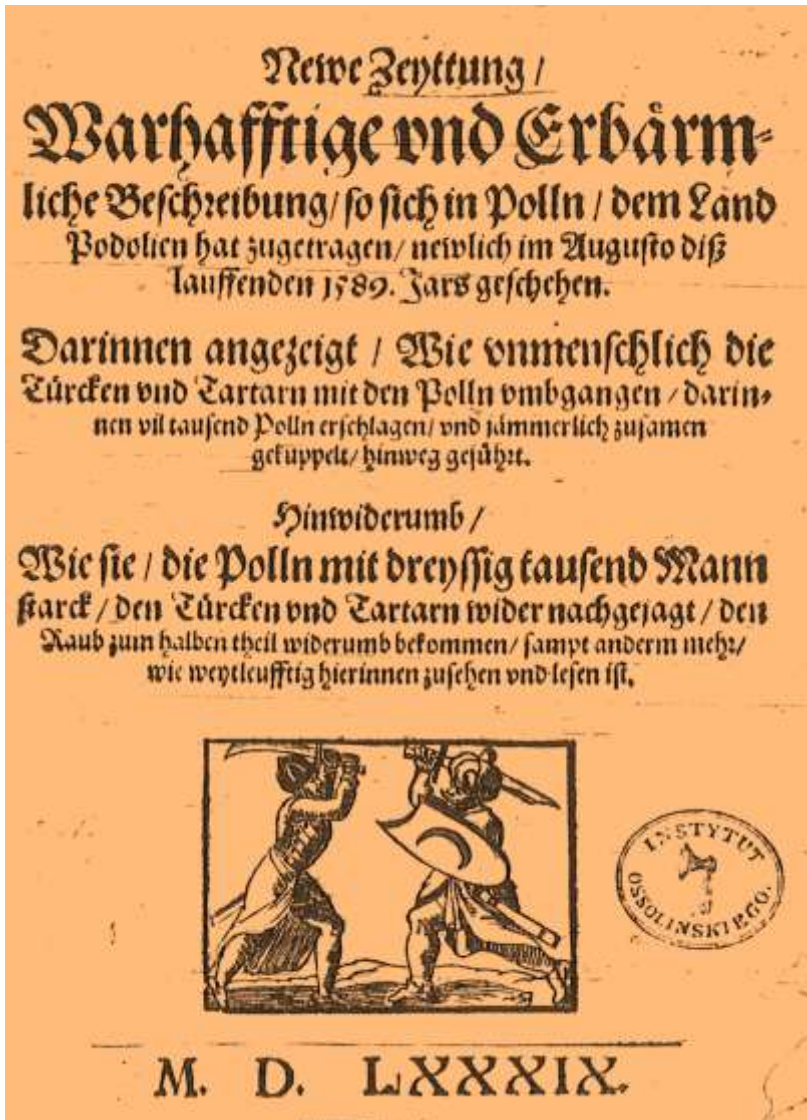 Newe Zeyttung /
Warhafftige vnd Erbärm-
liche Beschreibung / so sich in Polln / dem Land
Podolien hat zugetragen / newlich im Augusto diß
lauffenden 1589. Jars geschehen.
Darinnen angezeigt / Wie vnmenschlich die
Türcken vnd Tartarn mit den Polln vmbgangen / darin-
nen vil tausend Polln erschlagen / vnd jämmerlich zusamen
gekuppelt / hinweg geführt.
Hinwiderumb /
Wie sie / die Polln mit dreyssig tausend Mann
starck / den Türcken vnd Tartarn wider nachgejagt / den
Raub zum halben theil widerumb bekommen / sampt anderm mehr /
wie weytleufftig hierinnen zusehen vnd lesen ist.
INSTYTUT
OSSOLINSKIEGO.
M. D. LXXXIX.